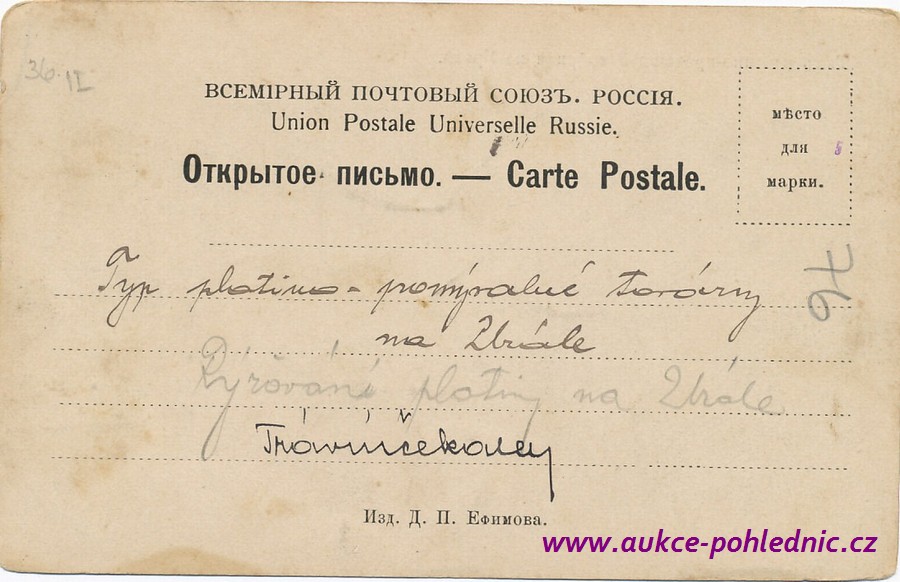 36. II
ВСЕМІРНЫЙ ПОЧТОВЫЙ СОЮЗЪ. РОССІЯ.
Union Postale Universelle Russie.
Открытое письмо. — Carte Postale.
мѣсто
для
марки.
Typ platino-promývalné továrny
na Urále
76
Rýžování platiny na Urále
Изд. Д. П. Ефимова.
www.aukce-pohlednic.cz